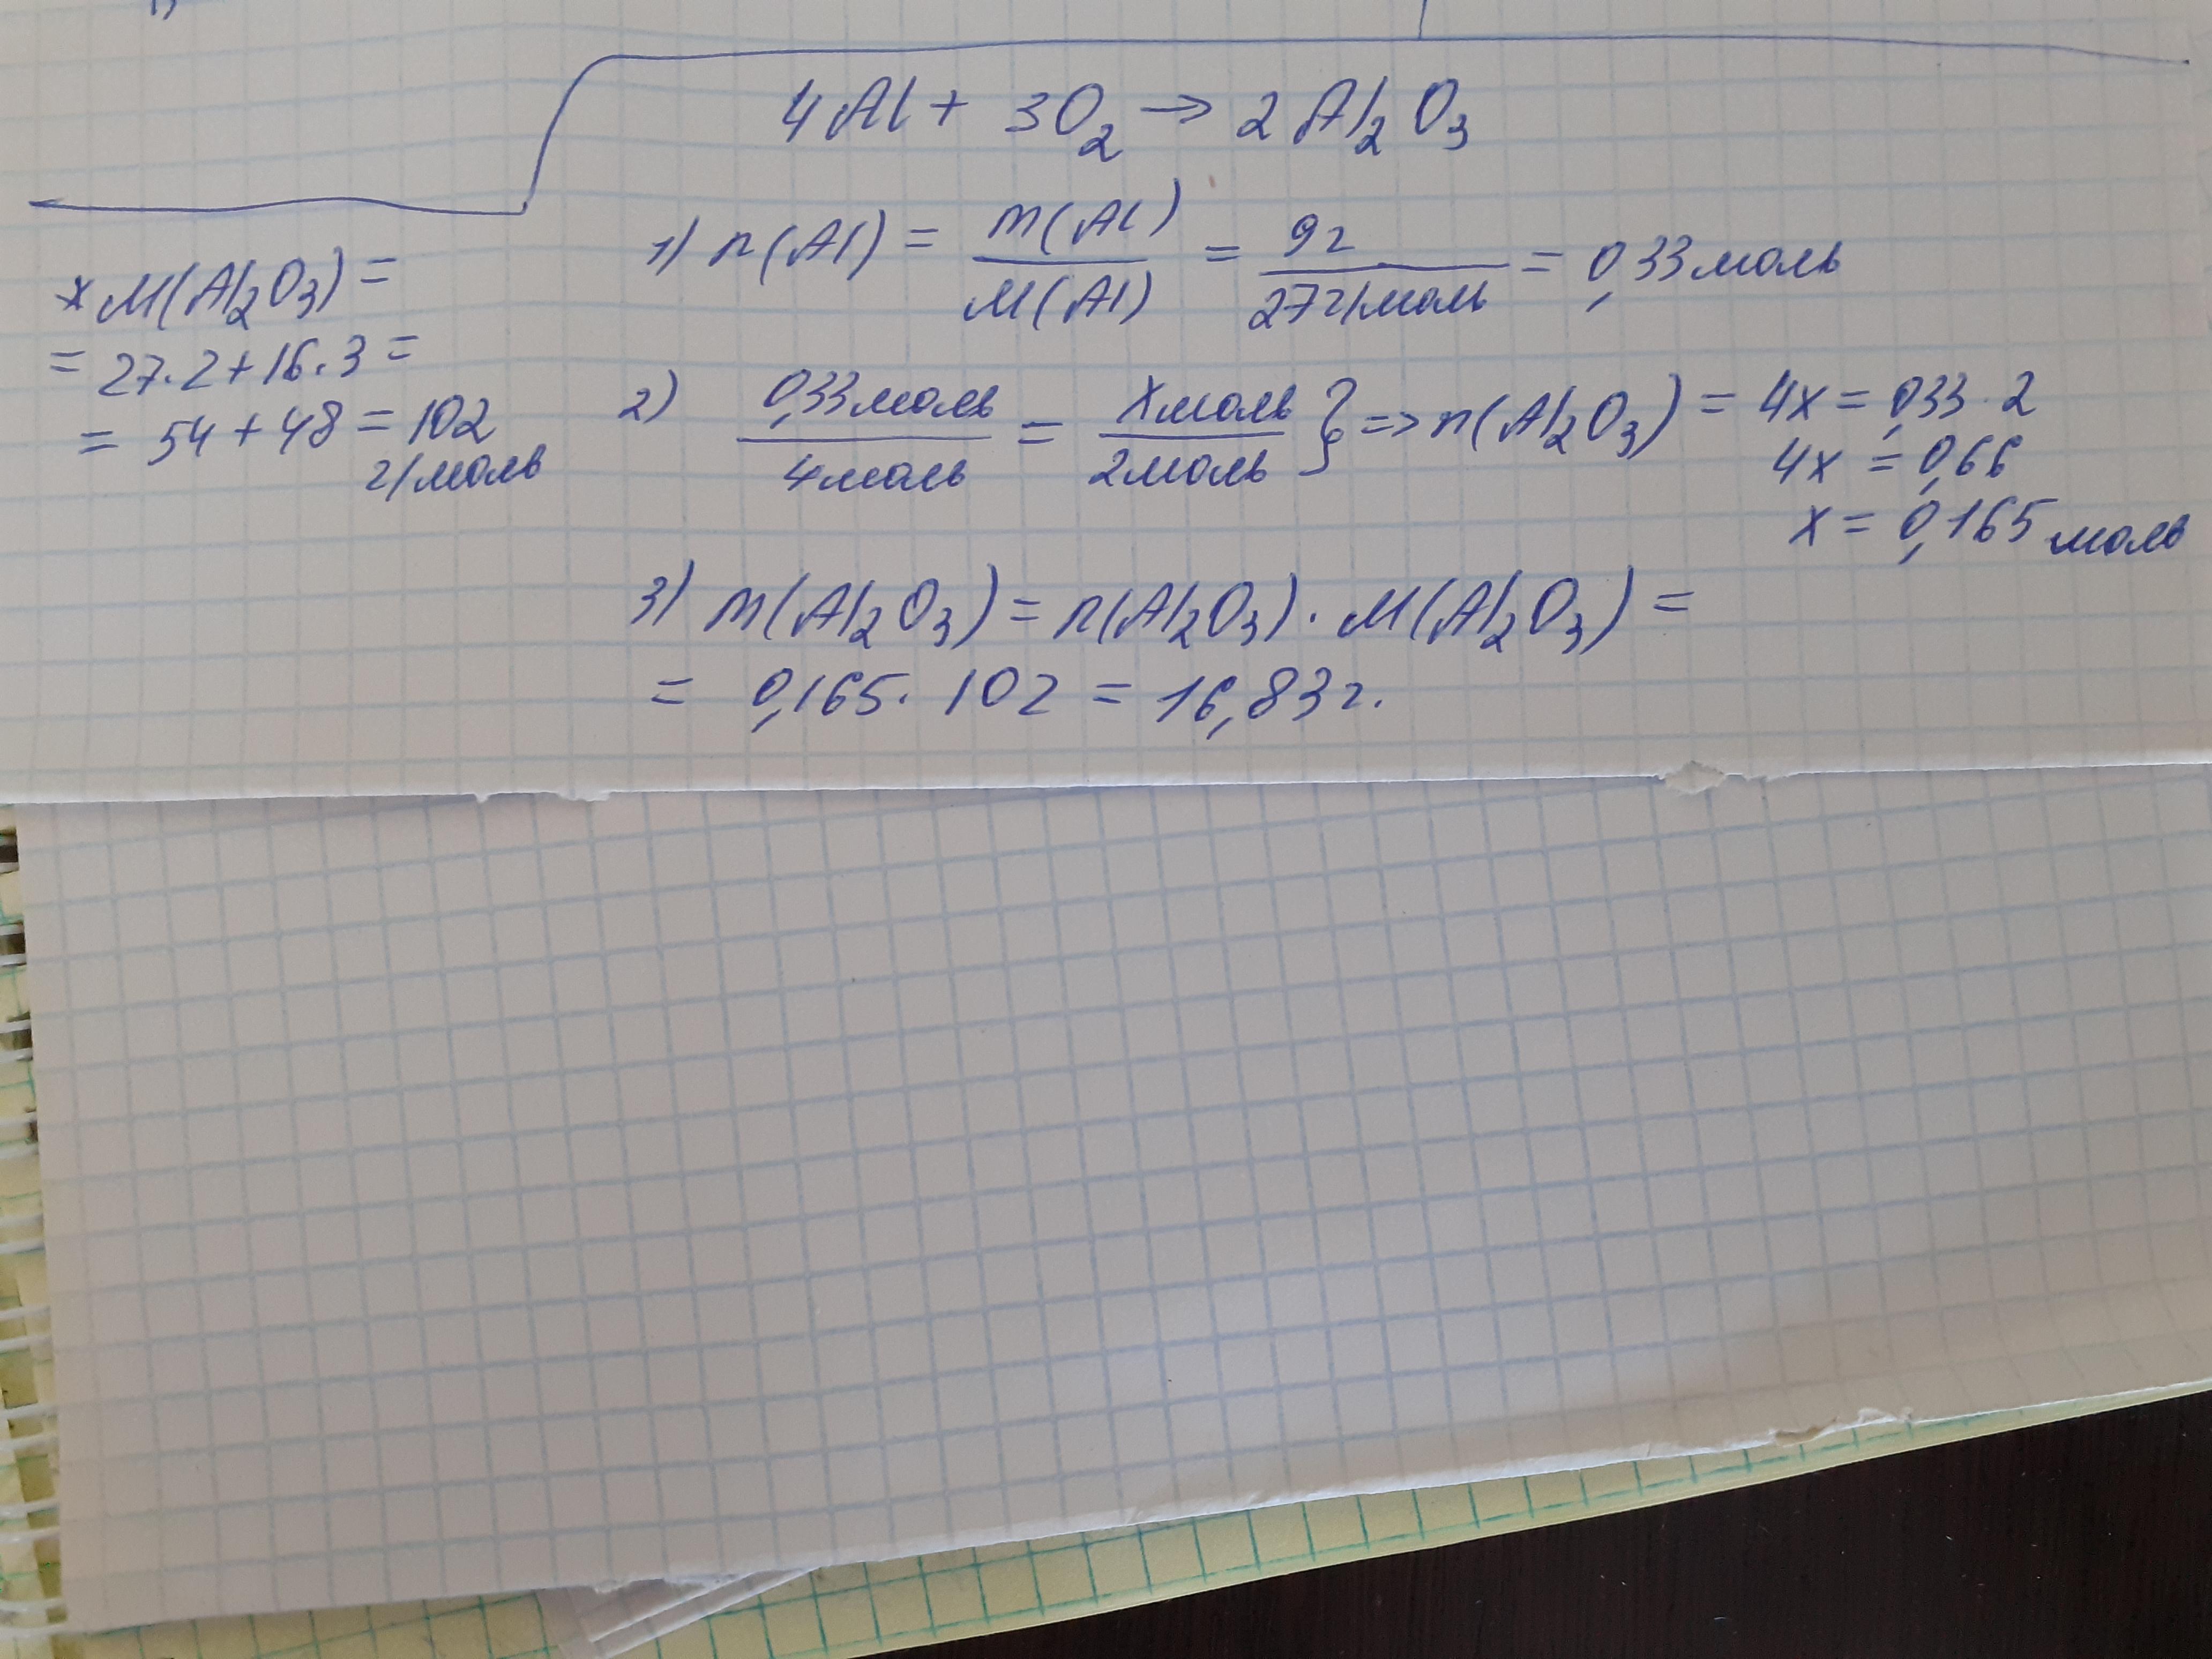 4Al + 3O₂ → 2Al₂O₃
* M(Al₂O₃) =
= 27·2+16·3 =
= 54 + 48 = 102
г/моль
1) n(Al) = m(Al)/M(Al) = 9г/27г/моль = 0,33 моль
2) 0,33моль/4моль = x моль/2моль } => n(Al₂O₃) = 4x = 0,33·2
4x = 0,66
x = 0,165 моль
3) m(Al₂O₃) = n(Al₂O₃)·M(Al₂O₃) =
= 0,165·102 = 16,83г.